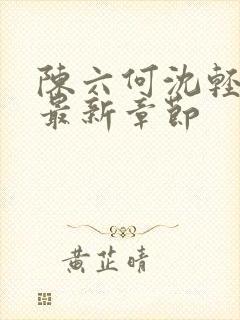 陳六何沈輕
最新章節
黃芷晴